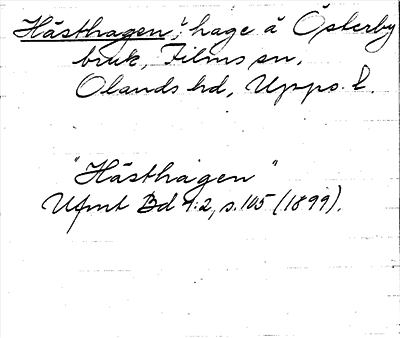 Hästhagen, hage å Österby
bruk, Films sn,
Olands hd, Upps. l.
"Hästhagen"
Ufmt Bd 4:2, s. 105 (1899).